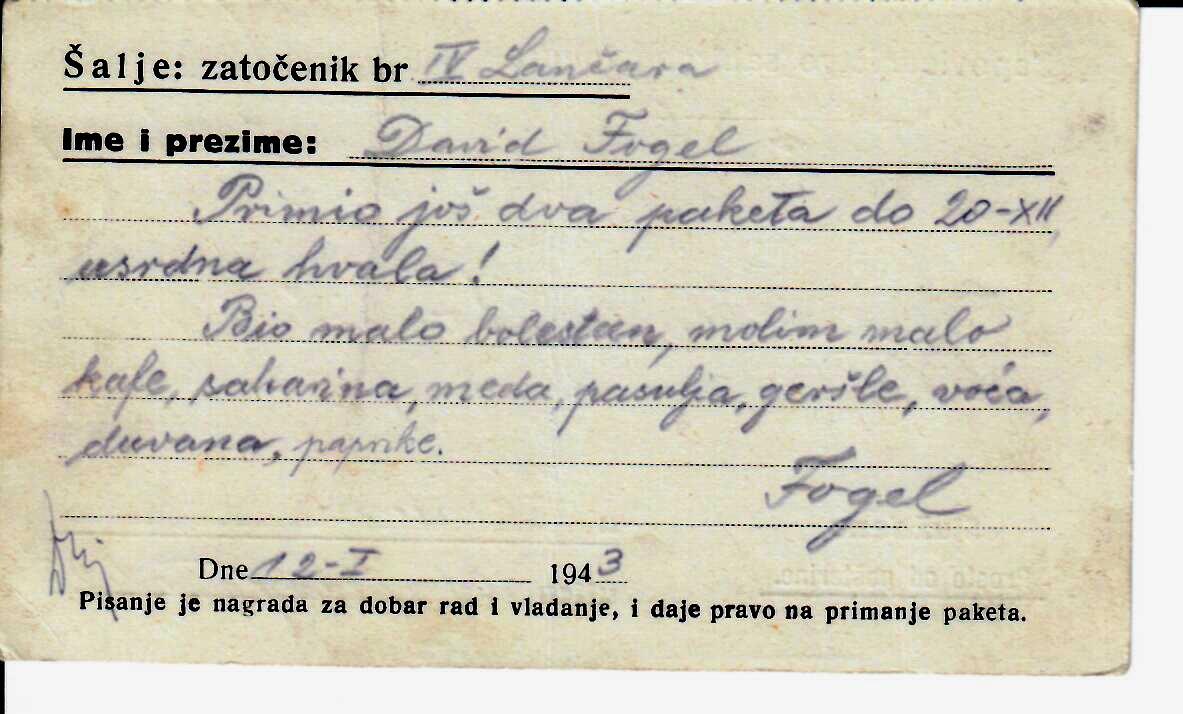 Šalje: zatočenik br IV Lančara
Ime i prezime: David Fogel
Primio još dva paketa do 20-XII,
usrdna hvala!
Bio malo bolestan, molim malo
kafe, saharina, meda, pasulja, geršle, voća,
duvana, paprike.
Fogel
Dne 12-I 1943
Pisanje je nagrada za dobar rad i vladanje, i daje pravo na primanje paketa.